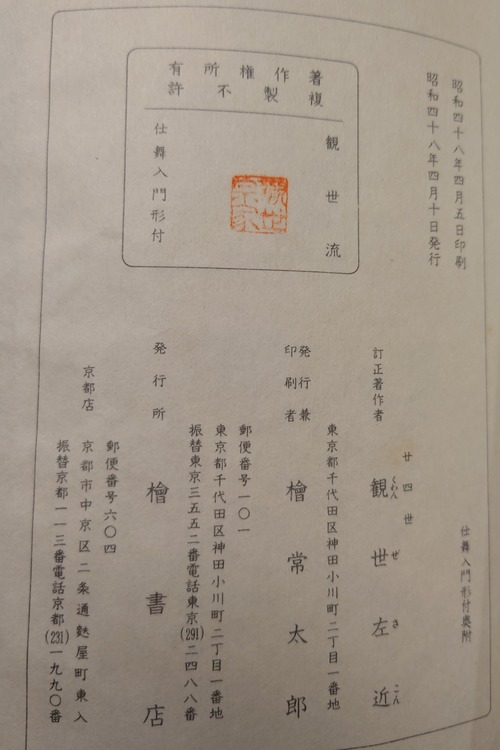 昭和四十八年四月五日印刷
昭和四十八年四月十日発行
著作権所有
複製不許
観世流
仕舞入門形付
観世宗家
仕舞入門形付奥附
廿四世
訂正著作者 観世左近
くわんぜさこん
東京都千代田区神田小川町二丁目一番地
発行兼印刷者 檜常太郎
郵便番号一〇一
東京都千代田区神田小川町二丁目一番地
振替東京三五五二番電話東京(291)二四八八番
発行所 檜書店
郵便番号六〇四
京都店 京都市中京区二条通麩屋町東入
振替京都一一三番電話京都(231)一九九〇番